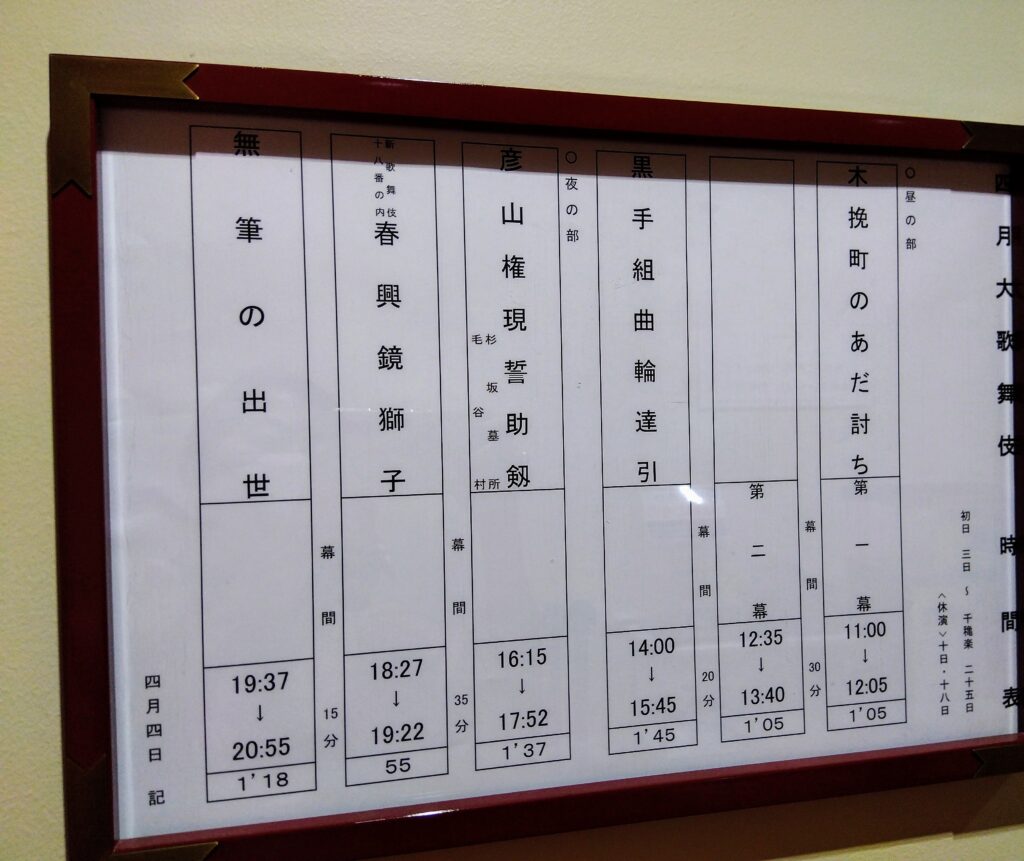 四月大歌舞伎 時間表
初日 三日 ~ 千穐楽 二十五日
<休演>十日・十八日
○昼の部
木挽町のあだ討ち 第一幕 11:00 ↓ 12:05 1'05
幕間 30分
第二幕 12:35 ↓ 13:40 1'05
幕間 20分
黒手組曲輪達引 14:00 ↓ 15:45 1'45
○夜の部
彦山権現誓助剱
杉坂墓所
毛谷村
16:15 ↓ 17:52 1'37
幕間 35分
新歌舞伎
十八番の内
春興鏡獅子 18:27 ↓ 19:22 55
幕間 15分
無筆の出世 19:37 ↓ 20:55 1'18
四月四日 記